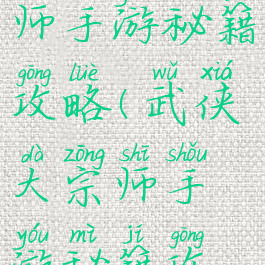 师手游秘籍
gōng lüè wǔ xiá
攻略(武侠
dà zōng shī shǒu
大宗师手
yóu mì jí gōng
游秘籍攻